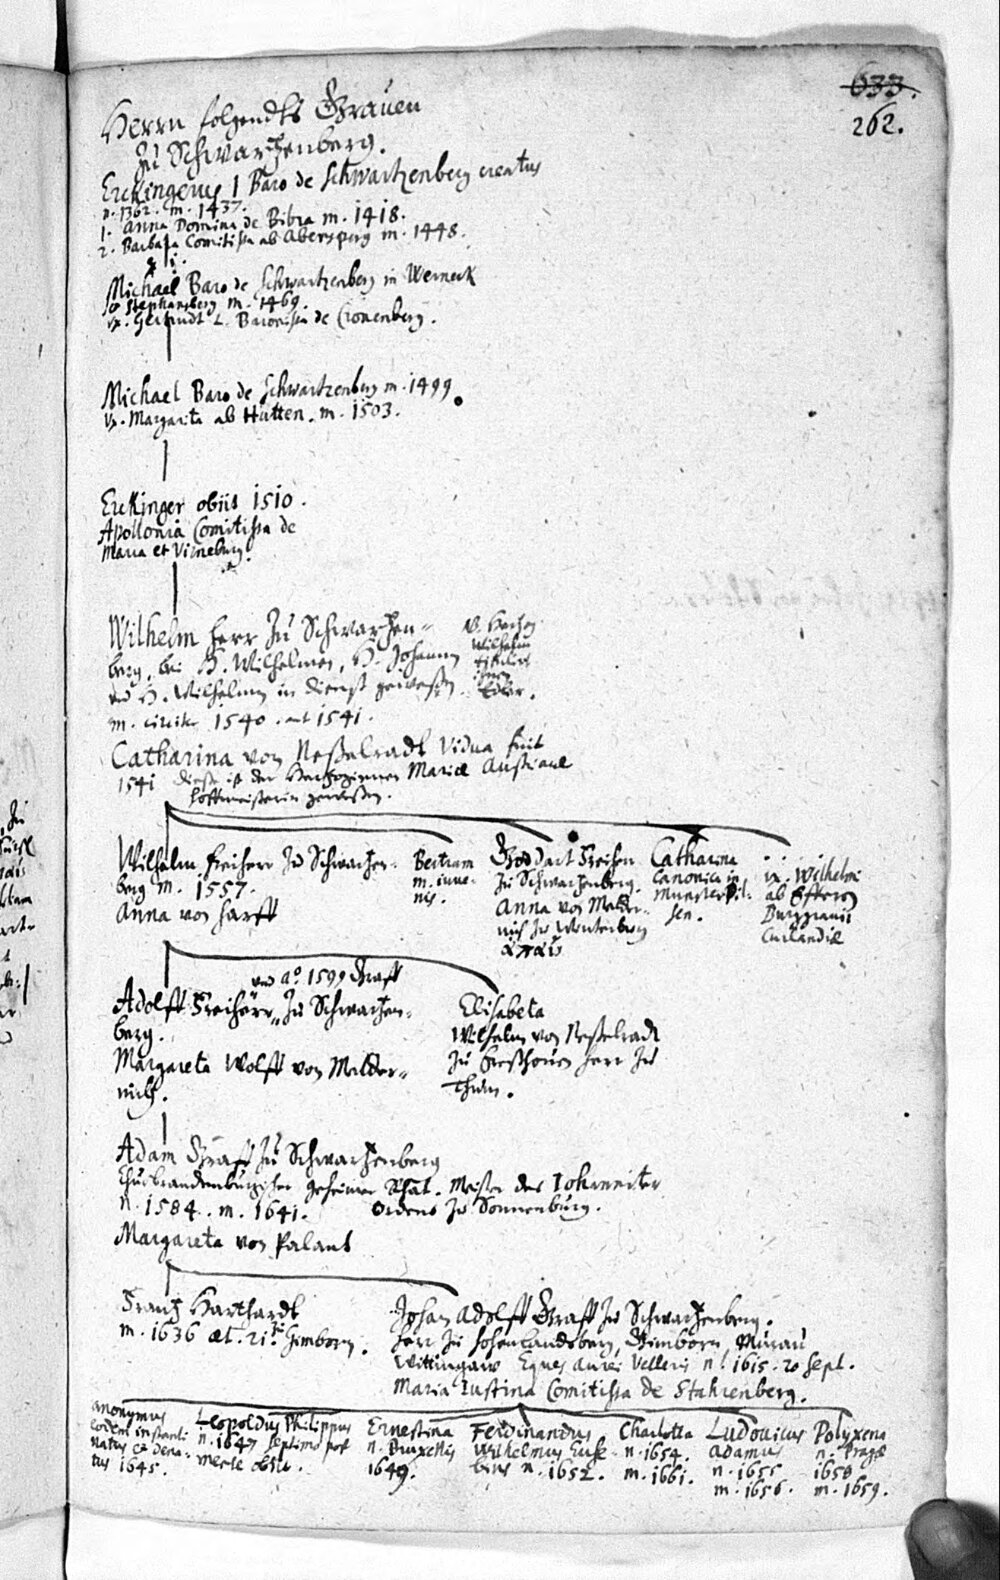 633.
262.
Herrn folgendts Graven
zu Schwarzenberg.
Erckingerus 1 Baro de Schwartzenberg creatus
n. 1362. m. 1437.
1. Anna Domina de Bibra m. 1418.
2. Barbara Comitissa ab Abensperg m. 1448.
Michael Baro de Schwartzenberg in Werneck
Stephansberg m. 1469.
ux. Gertrudt L. Baronissa de Cronenberg.
Michael Baro de Schwartzenberg m. 1499.
ux. Margarita ab Hutten. m. 1503.
Erckinger obiit 1510.
Apollonia Comitissa de
Marca et Virneburg.
Wilhelm Herr zu Schwarzen-
berg, bei H. Wilhelmen, H. Johann
und H. Wilhelmen in dienst gewesen.
m. circiter 1540. aut 1541.
Wilhelm
Edler.
Catharina von Nesselradt Vidua fuit
1541 diese ist der Hertzoginnen Mariæ Austriacæ
hoffmeisterin gewesen.
Wilhelm Freiherr zu Schwarzen-
berg m. 1557.
Anna von Harff
Bertram
m. iuve-
nis.
Goddart Freiherr
zu Schwarzenberg.
Anna von
Catharina
Canonica in
Munsterbil-
sen.
ux. Wilhelmi
ab Efferen
Burggravii
Curlandiæ
und aº. 1599 Graff
Adolff Freiherr zu Schwarzen-
berg.
Margareta Wolff von Metter-
nich.
Elisabeta
Wilhelm von Nesselradt
zu herr zu
Thum.
Adam Graff zu Schwarzenberg
Churbrandenburgischer geheimer Rhat. Meister des Johanniter
n. 1584. m. 1641. Ordens zu Sonnenburg.
Margareta von Palant
Frantz Harthardt
m. 1636 æt. 21. zu Gimborn.
Johan Adolff Graff zu Schwarzenberg.
Herr zu Hohenlandsberg, Gimborn, Murau
Wittingaw Eques Aurei Velleris n. 1615. 20 Sept.
Maria Iustina Comitissa de Stahrenberg.
Anonymus
eodem instanti
natus et dena-
tus 1645.
Leopoldus Philippus
n. 1647 septimo post
mense obiit.
Ernestina
n. Bruxellis
1649.
Ferdinandus
Wilhelmus Euse-
bius n. 1652.
Charlotta
n. 1654.
m. 1661.
Ludovicus
Adamus
n. 1655
m. 1656.
Polyxena
n. Pragæ
1658
m. 1659.